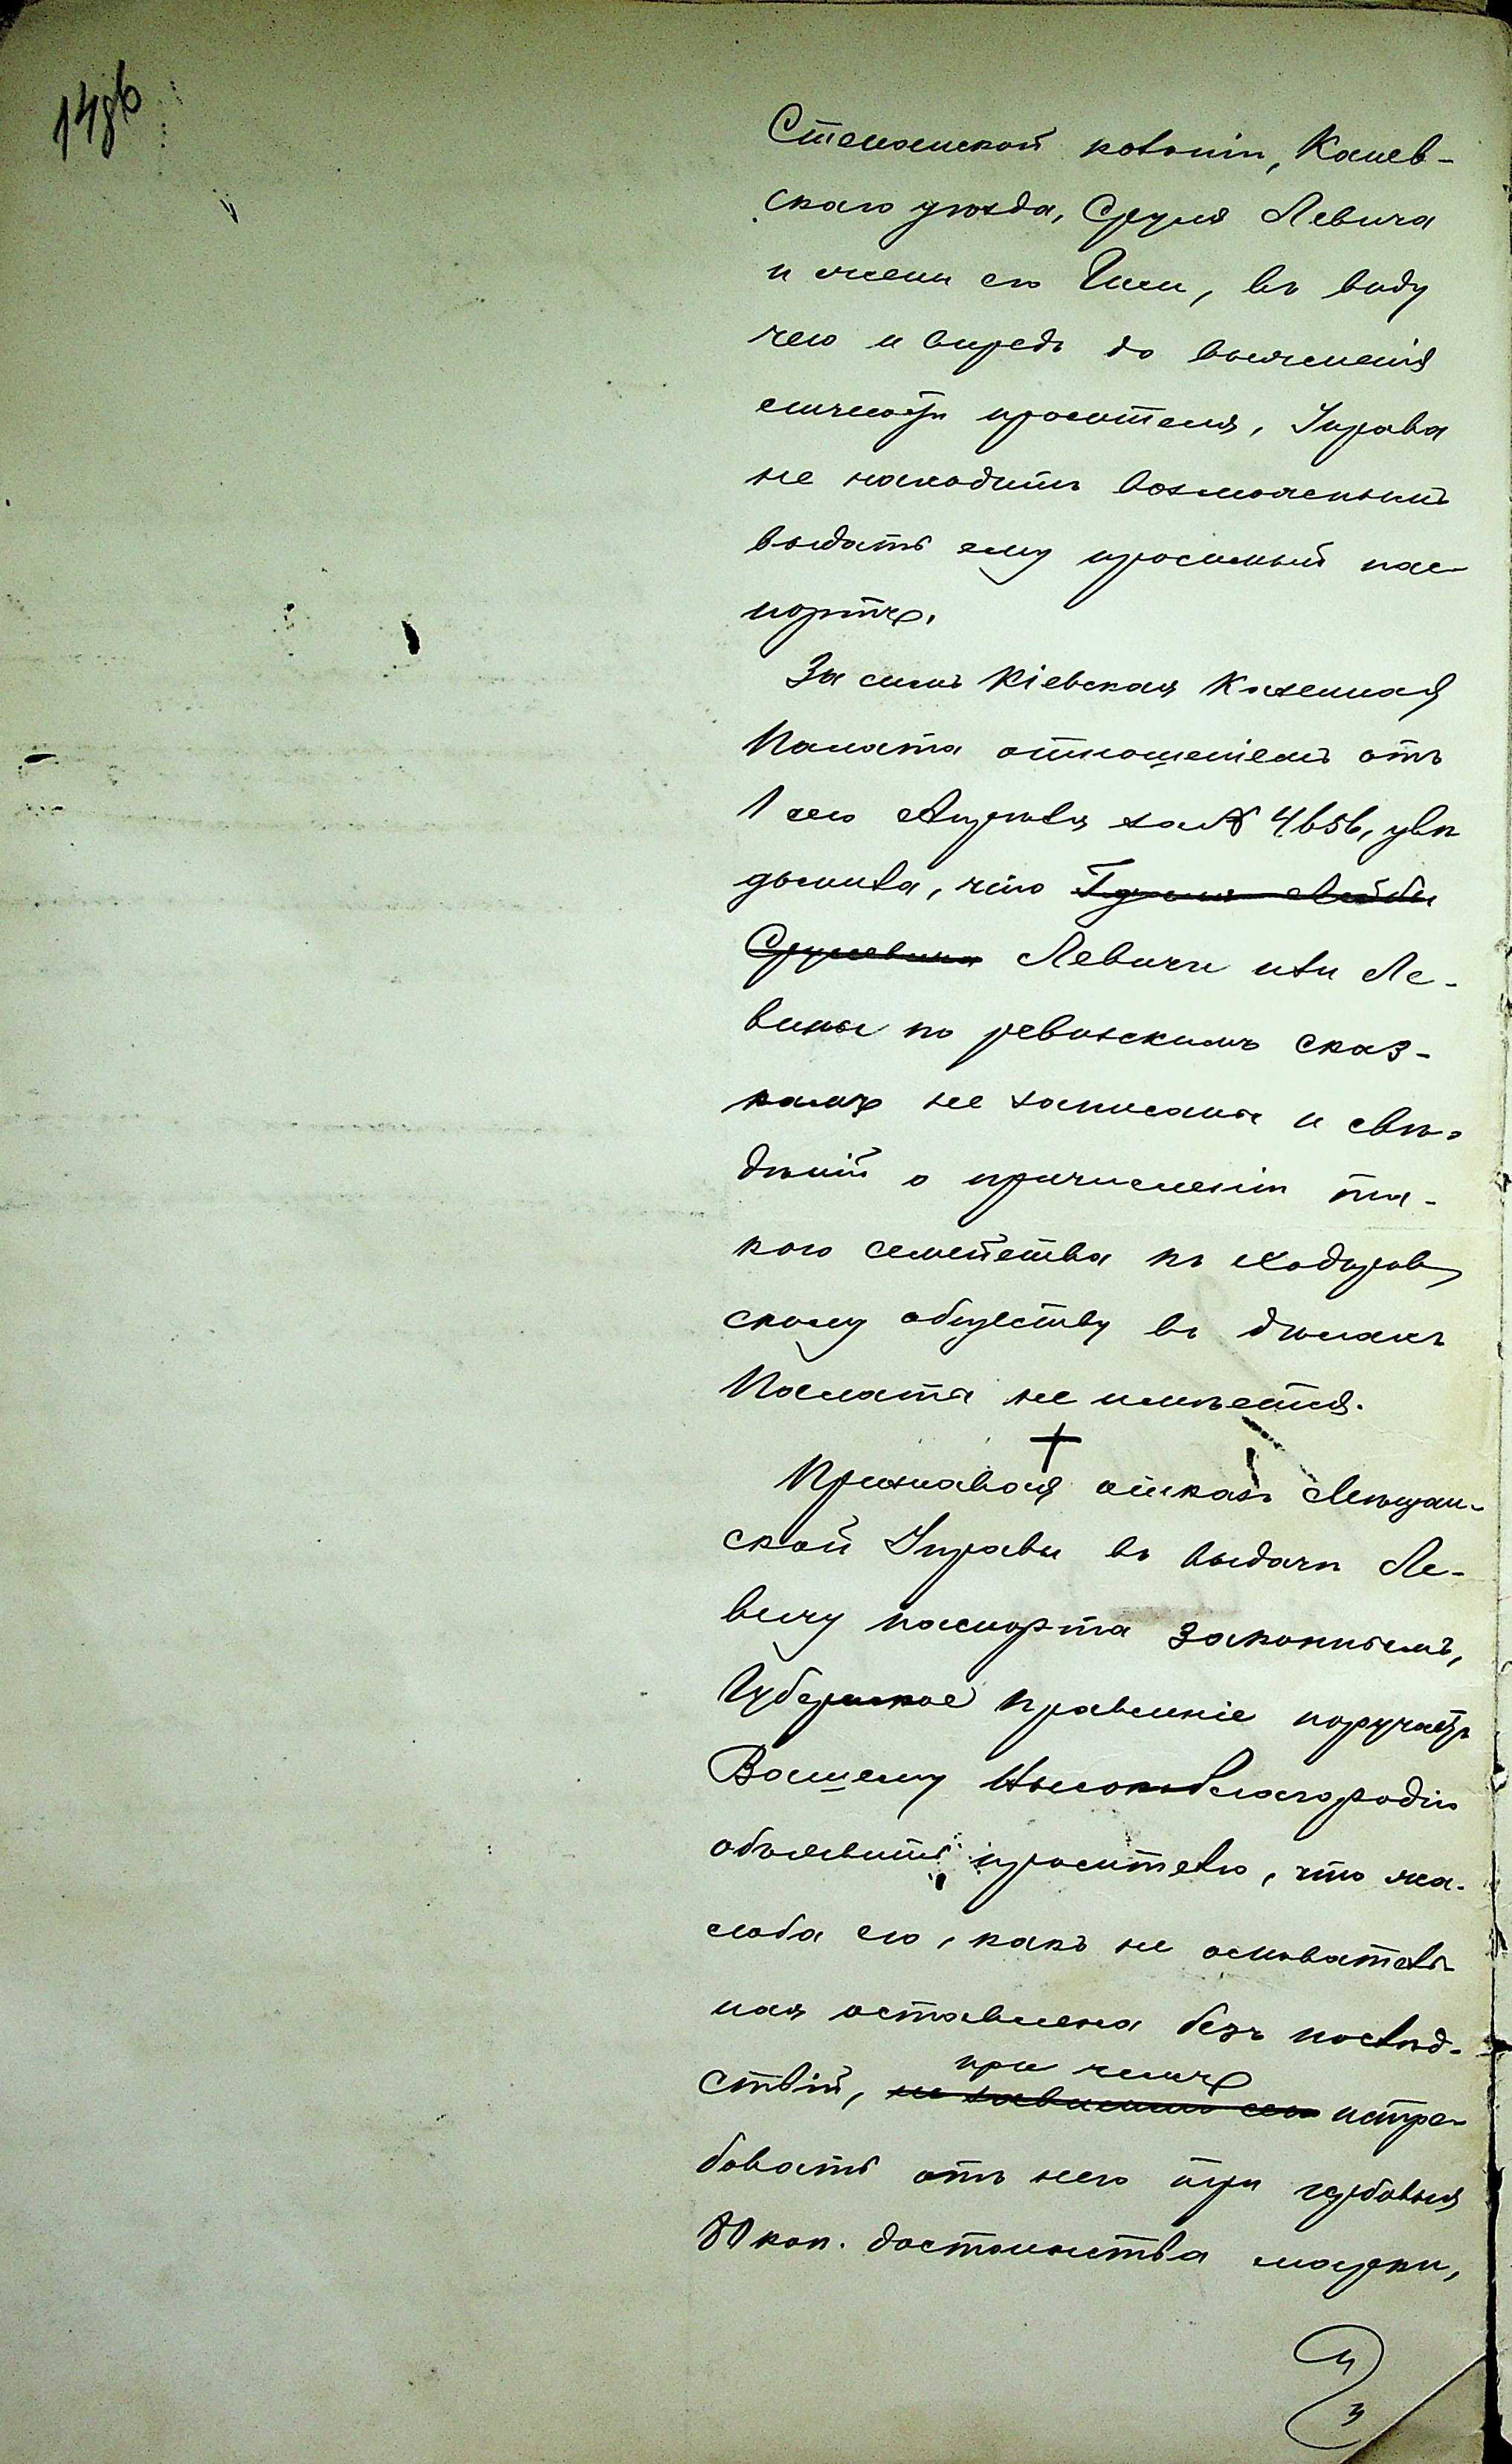 14об
Степанской колоніи, Канев-
скаго уѣзда, Сруля Левича
и жены его Гини, въ виду
чего и впредь до выясненія
личности просителя, Управа
не находитъ возможнымъ
выдать ему просимый пас-
портъ.
За симъ Кіевская Казенная
Палата отношеніемъ отъ
1 сего Апрѣля за № 4656, увѣ
домила, что
Левичи или Ле-
вины по ревизскимъ сказ-
камъ не записаны и свѣ-
дѣній о причисленіи та-
кого семейства къ Ходоров
скому обществу въ дѣлахъ
Палаты не имѣется.
Признавая отказъ Мѣщан-
ской Управы въ выдачѣ Ле-
вичу паспорта законнымъ,
Губернское Правленіе поручаетъ
Вашему Высокоблагородію
объявить просителю, что жа-
лоба его, какъ не основатель-
ная оставлена безъ послѣд-
при чемъ
ствій, не зависимо сего истре-
бовать отъ него три гербовыя
80 коп. достоинства марки,